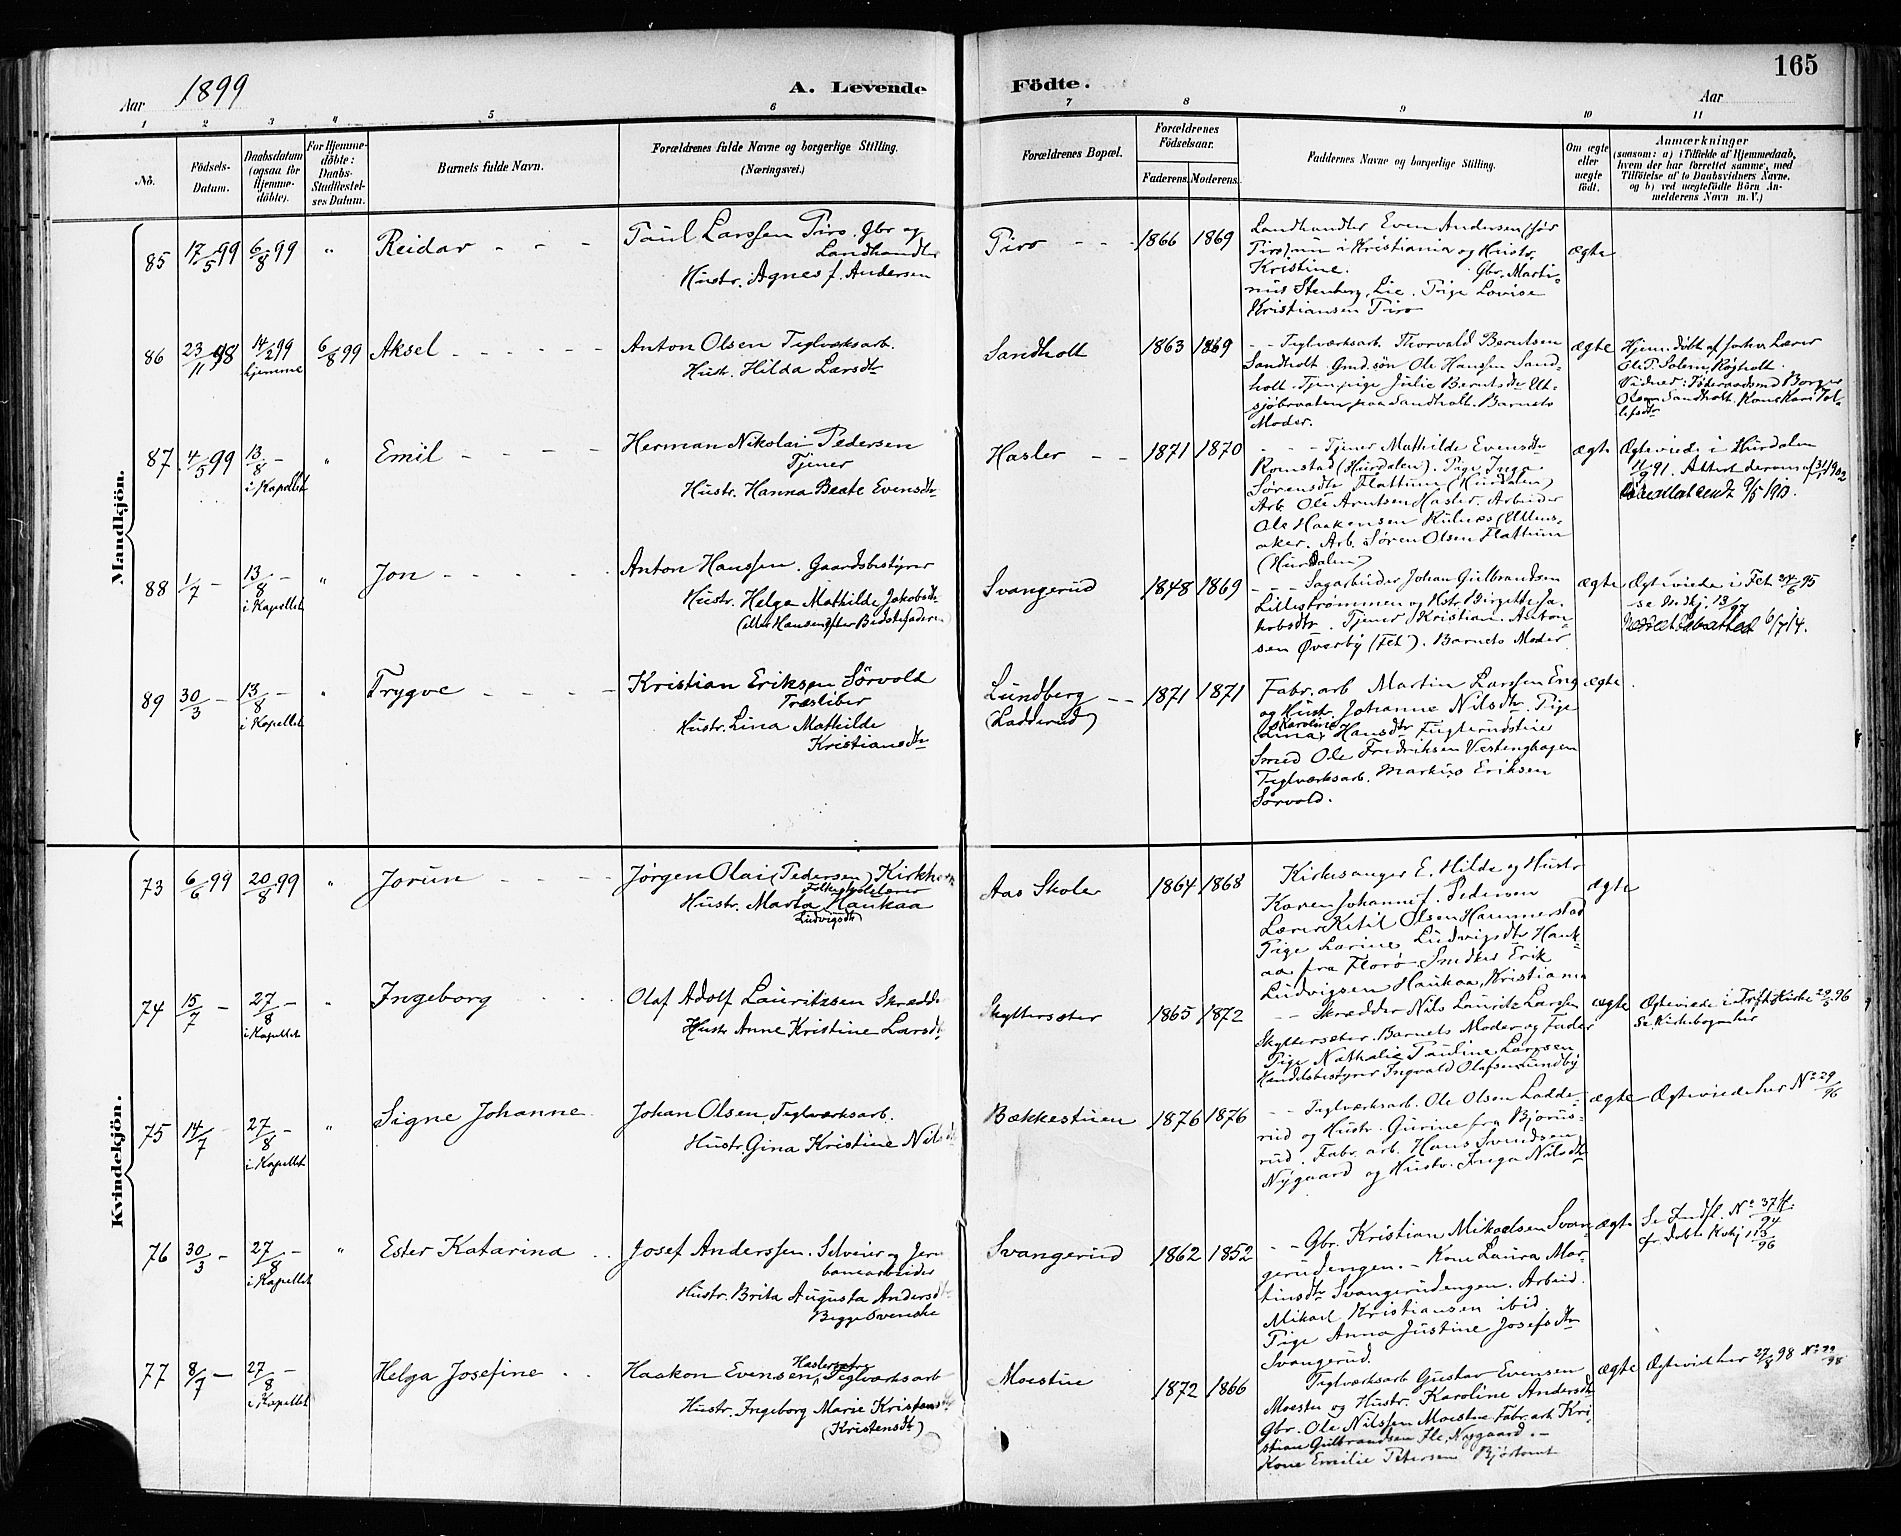 165
Aar 1899
A. Levende Födte.
Aar
1 2 3 4 5 6 7 8 9 10 11
No.
Födsels-
Datum.
Daabsdatum
(ogsaa for
Hjemme-
döbte).
For Hjemme-
döbte:
Daabs-
Stadfæstel-
ses Datum.
Barnets fulde Navn.
Forældrenes fulde Navne og borgerlige Stilling.
(Næringsvei.)
Forældrenes Bopæl.
Forældrenes
Födselsaar.
Faderens. Moderens.
Faddernes Navne og borgerlige Stilling.
Om ægte
eller
uægte
födt.
Anmærkninger
(saasom: a) i Tilfælde af Hjemmedaab,
hvem der har forrettet samme, med
Tilföielse af to Daabsvidners Navne,
og b) ved uægtefödte Börn An-
melderens Navn m. V.)
Mandkjön.
85 17/5 99 6/8 99 " Reidar
Paul Larssen Tiro. Gbr og
Landhandler
Hustr. Agnes f. Andersen
Tiro 1866 1869
Landhandler Even Andersen (för
Tiro) nu i Kristiania og Hustr.
Kristine. Gbr. Marti-
nus Stenberg, Lie. Pige Lovise
Kristiansen Tiro
ægte
86 23/11 98 14/2 99 hjemme 6/8 99 Aksel
Anton Olsen Teglværksarb.
Hustr. Hilda Larsdtr
Sandholt 1863 1869
Teglværksarb. Thorvald Berntsen
Sandholt. Gmd.sön Ole Hanssen Sand-
holt. Tjen.pige Julie Berntsdtr
paa Sandholt. Barnets
Moder.
ægte
Hjemmdöbt af Lærer
Ole P. Solem,
Vidner:
Olsen Sandholt. Kone Kari Tol-
lefsdtr
87 4/5 99 13/8 i Kapellet " Emil
Herman Nikolai Pedersen
Tjener
Hustr. Hanna Beate Evensdtr
Hasler 1871 1870
Tjener Mathilde Evensdtr
Romstad (Hurdalen). Pige Inga
Sørensdtr Flattum (Hurdalen)
Arb. Ole Arntsen Hasler. Arbeider
Ole Haakensen Kulnes (Ullens-
aker. Arb. Søren Olsen Flattum
(Hurdalen)
ægte
Ægteviede i Hurdalen
11/9 91. Attest derom af 31/1 1902
88 1/7 13/8 i Kapellet " Jon
Anton Hanssen. Gaardsbestyrer
Hustr. Helga Mathilde Jakobsdtr
(eller Hansen efter Bedstefaderen)
Svangerud 1848 1869
Sagarbeider Johan Gulbrandsen
Lillestrømmen og Hstr. Birgette Ja-
kobsdtr. Tjener Kristian Anton-
sen Øverby (Fet). Barnets Moder
ægte
Ægteviede i Fet 24/6 95
89 30/3 13/8 i Kapellet " Trygve
Kristian Eriksen Sörvold
Træsliber
Hustr. Lina Mathilde
Kristiansdtr
Lundberg
(Ladderud)
1871 1871
Fabr. arb Martin Larssen Eng
og Hustr. Johanne Nilsdtr. Pige
Karoline
(Lina) Hansdtr Fuglerudstue
Smed Ole Fredriksen Vestenghagen
Teglværksarb. Markus Eriksen
Sörvold.
ægte
Kvindekjön.
73 6/6 99 20/8 99 " Jorun
Jørgen Olai (Pedersen) Kirkh
Folkeskolelærer
Hustr. Marta Haukaa
Ludvigsdtr
Aas Skole 1864 1868
Kirkesanger E. Hilde og Hustr
Karen Johanne f. Pedersen
Lærer Ketil Olsen Hammerstad
Pige Larine Ludvigsdtr Hauk-
aa fra Florø. Snedker Erik
Ludvigsen Haukaa, Kristiania
ægte
74 15/7 27/8 i Kapellet " Ingeborg
Olaf Adolf Lauritzsen Skrædd
Hustr Anne Kristine Larsdtr
Skyttersæter 1865 1872
Skrædder Nils Lauritz Larssen
Skyttersæter. Barnets Moder og Fader
Pige Nathalie Pauline Larssen
Handelsbestyrer Ingvald Olafsen Lundby
ægte
Ægteviede i Kirke 29/3 96
Se Kirkebogen her
75 14/7 27/8 i Kapellet " Signe Johanne
Johan Olsen, Teglværksarb.
Hustr. Gina Kristine Nilsdtr
Bækkestuen 1876 1876
Teglværksarb. Ole Olsen Ladde-
rud og Hustr. Gurine fra Bjørus-
rud. Fabr. arb. Hans Svendsen
Nygaard og Hustr. Inga Nilsdtr
ægte
Ægteviede her No 29/96
76 30/3 27/8 i Kapellet " Ester Katarina
Josef Anderssen. Selveier og Jern
banearbeider
Hustr. Brita Augusta Andersdtr
Begge Svenske
Svangerud 1862 1852
Gbr. Kristian Mikaelsen Svan-
gerudengen. Kone Laura Mar-
tinsdtr Svangerudengen. Arbeid.
Mikael Kristiansen ibid
Pige Anna Justine Josefsdtr
Svangerud.
ægte
Se Indfl. No 37 /94
77 8/7 27/8 i Kapellet Helga Josefine
Haakon Evensen, Teglværksarb
Hustr. Ingeborg Marie Kristens
(Kristensdtr)
Moestue 1872 1866
Teglværksarb Gustav Evensen
Moestu og Hustr. Karoline Andersdtr
Gbr. Ole Nilssen Moestue Fabr. arb Kri-
stian Gulbrandsen Nygaard.
Kone Emilie Petersen
ægte
Ægteviet her 27/8 98